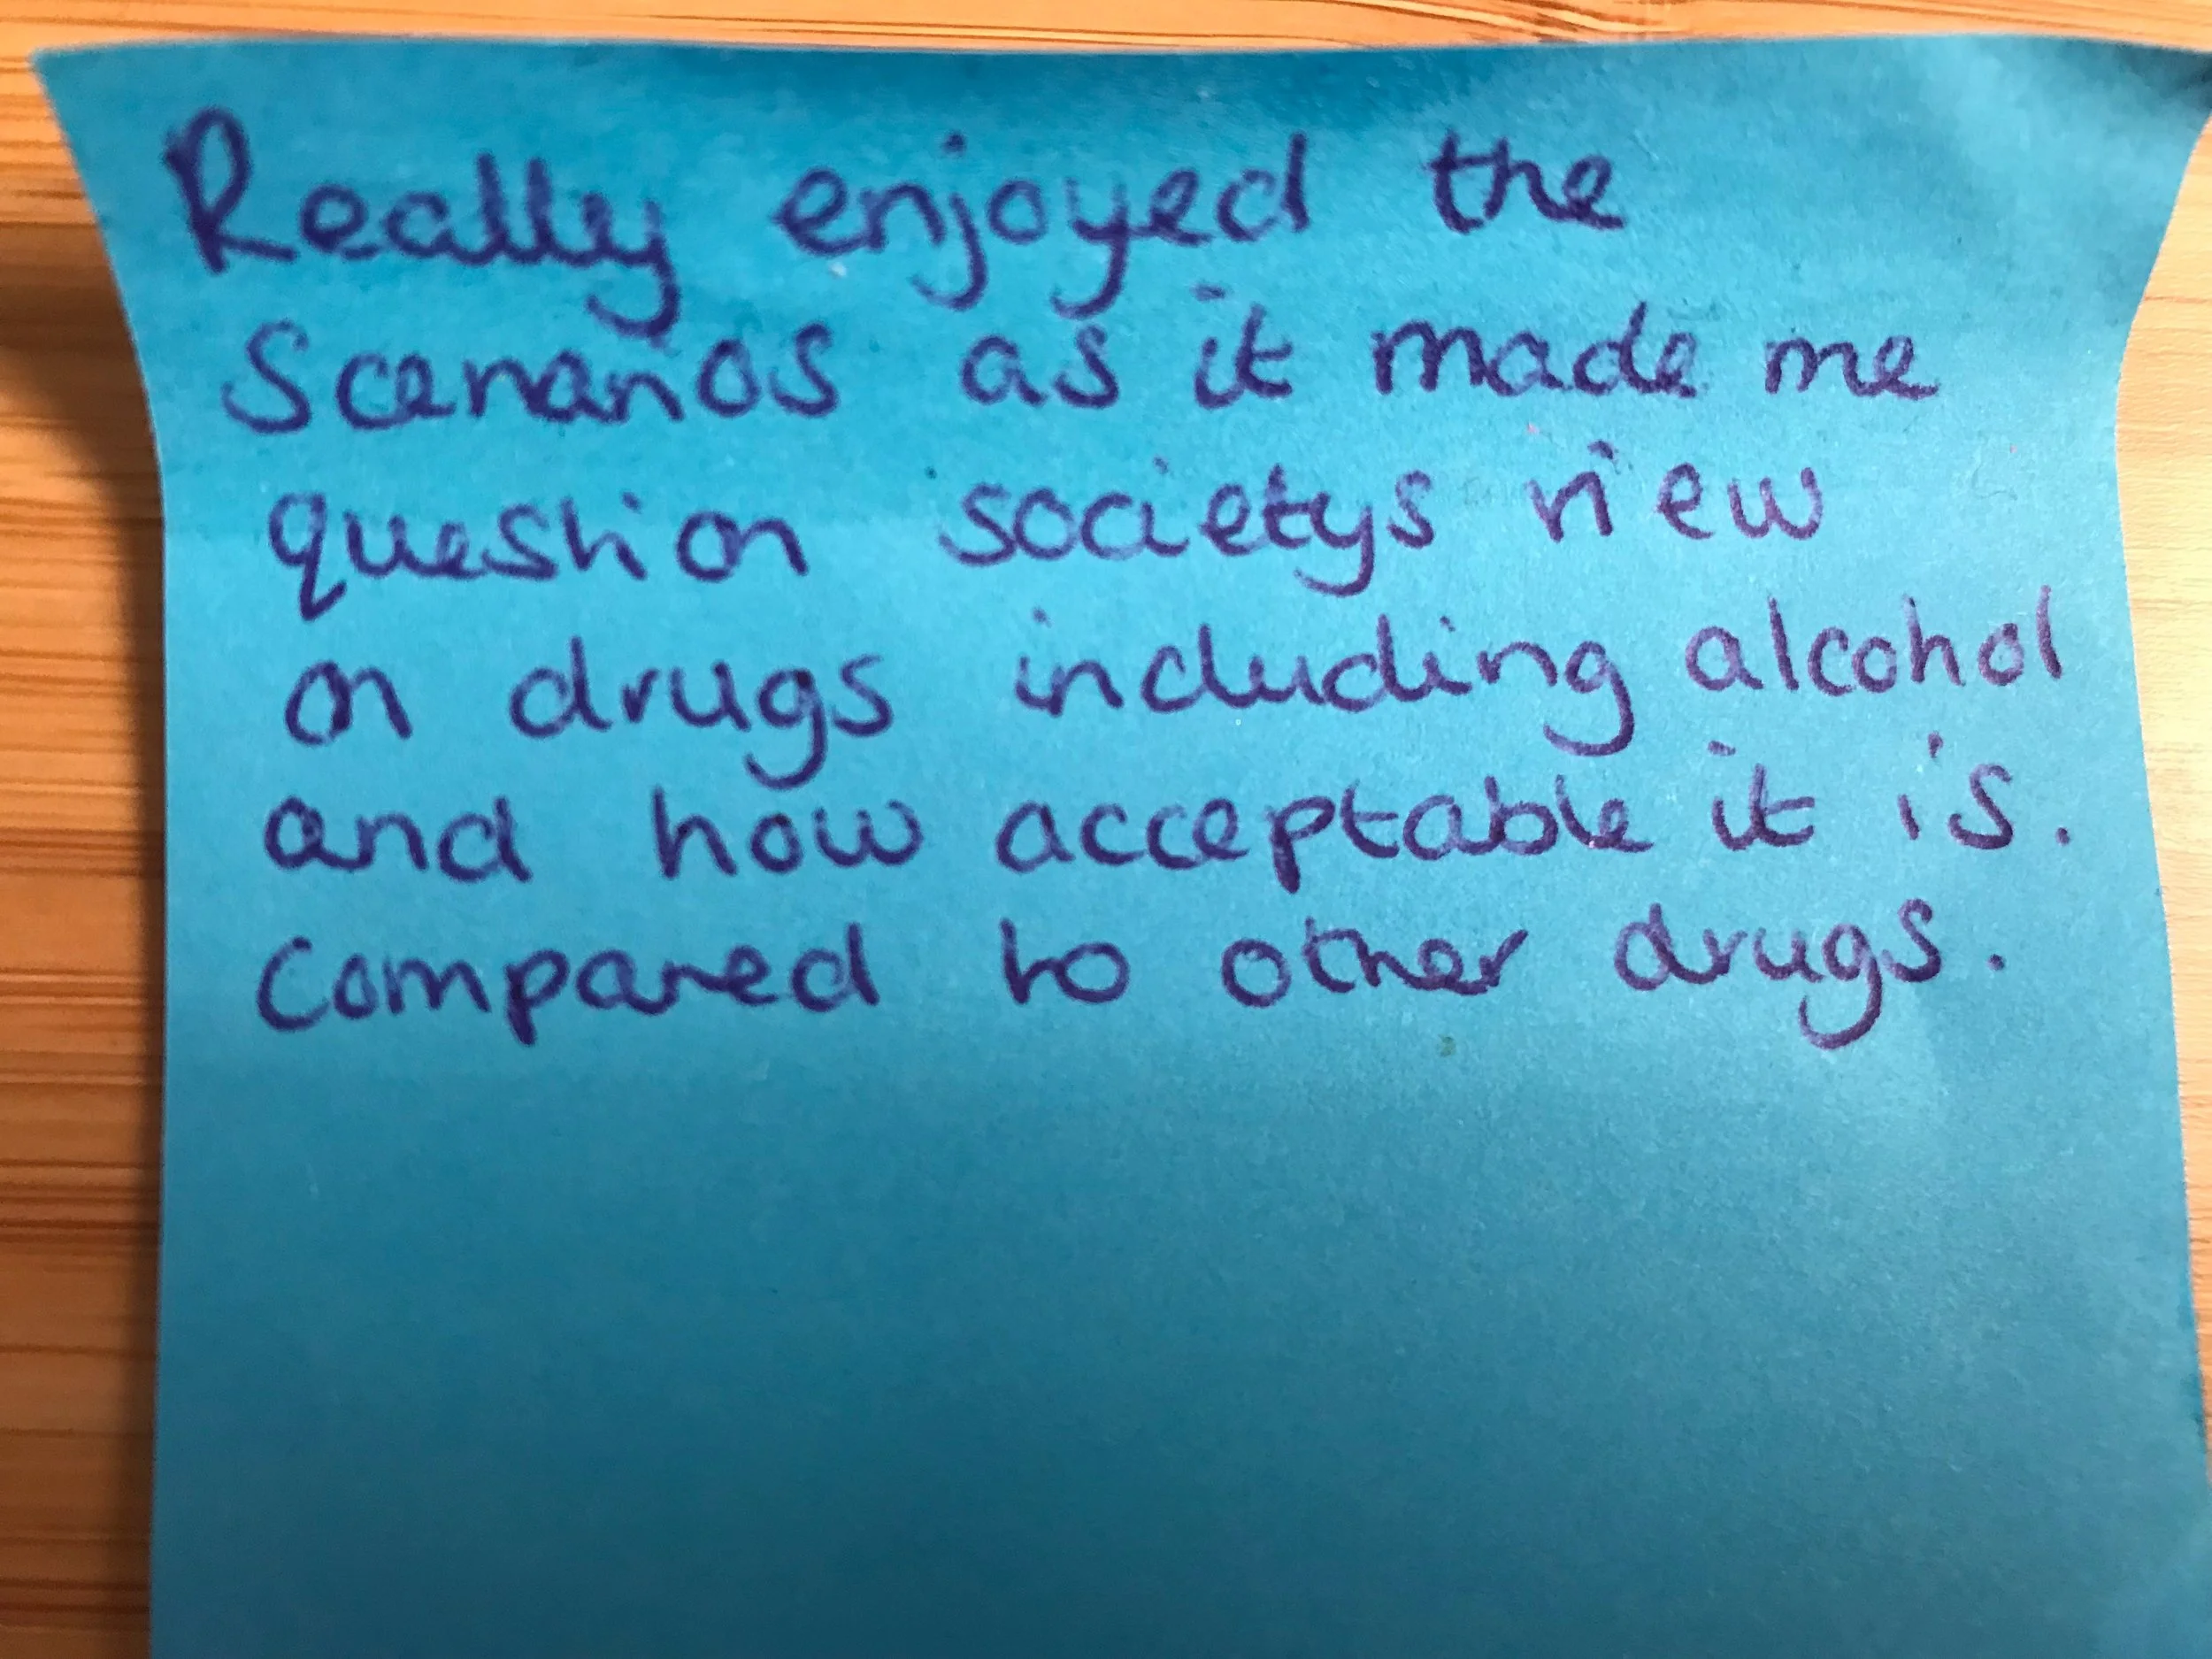 Really enjoyed the
Scenarios as it made me
question societys view
on drugs including alcohol
and how acceptable it is.
Compared to other drugs.